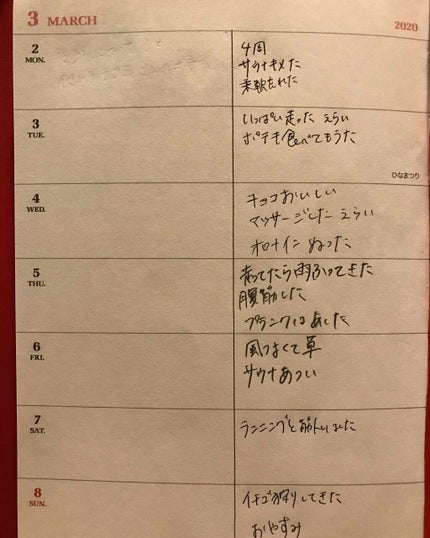 3 MARCH 2020
2
MON.
4周
サウナキメた
柔軟忘れた
3
TUE.
いっぱい走った えらい
ポテチ食べてもうた
ひなまつり
4
WED.
チョコおいしい
マッサージした えらい
オロナイン ぬった
5
THU.
走ってたら雨ふってきた
腹筋した
プランクはあした
6
FRI.
風つよくて草
サウナあつい
7
SAT.
ランニングと筋トレした
8
SUN.
イチゴ狩りしてきた
おやすみ